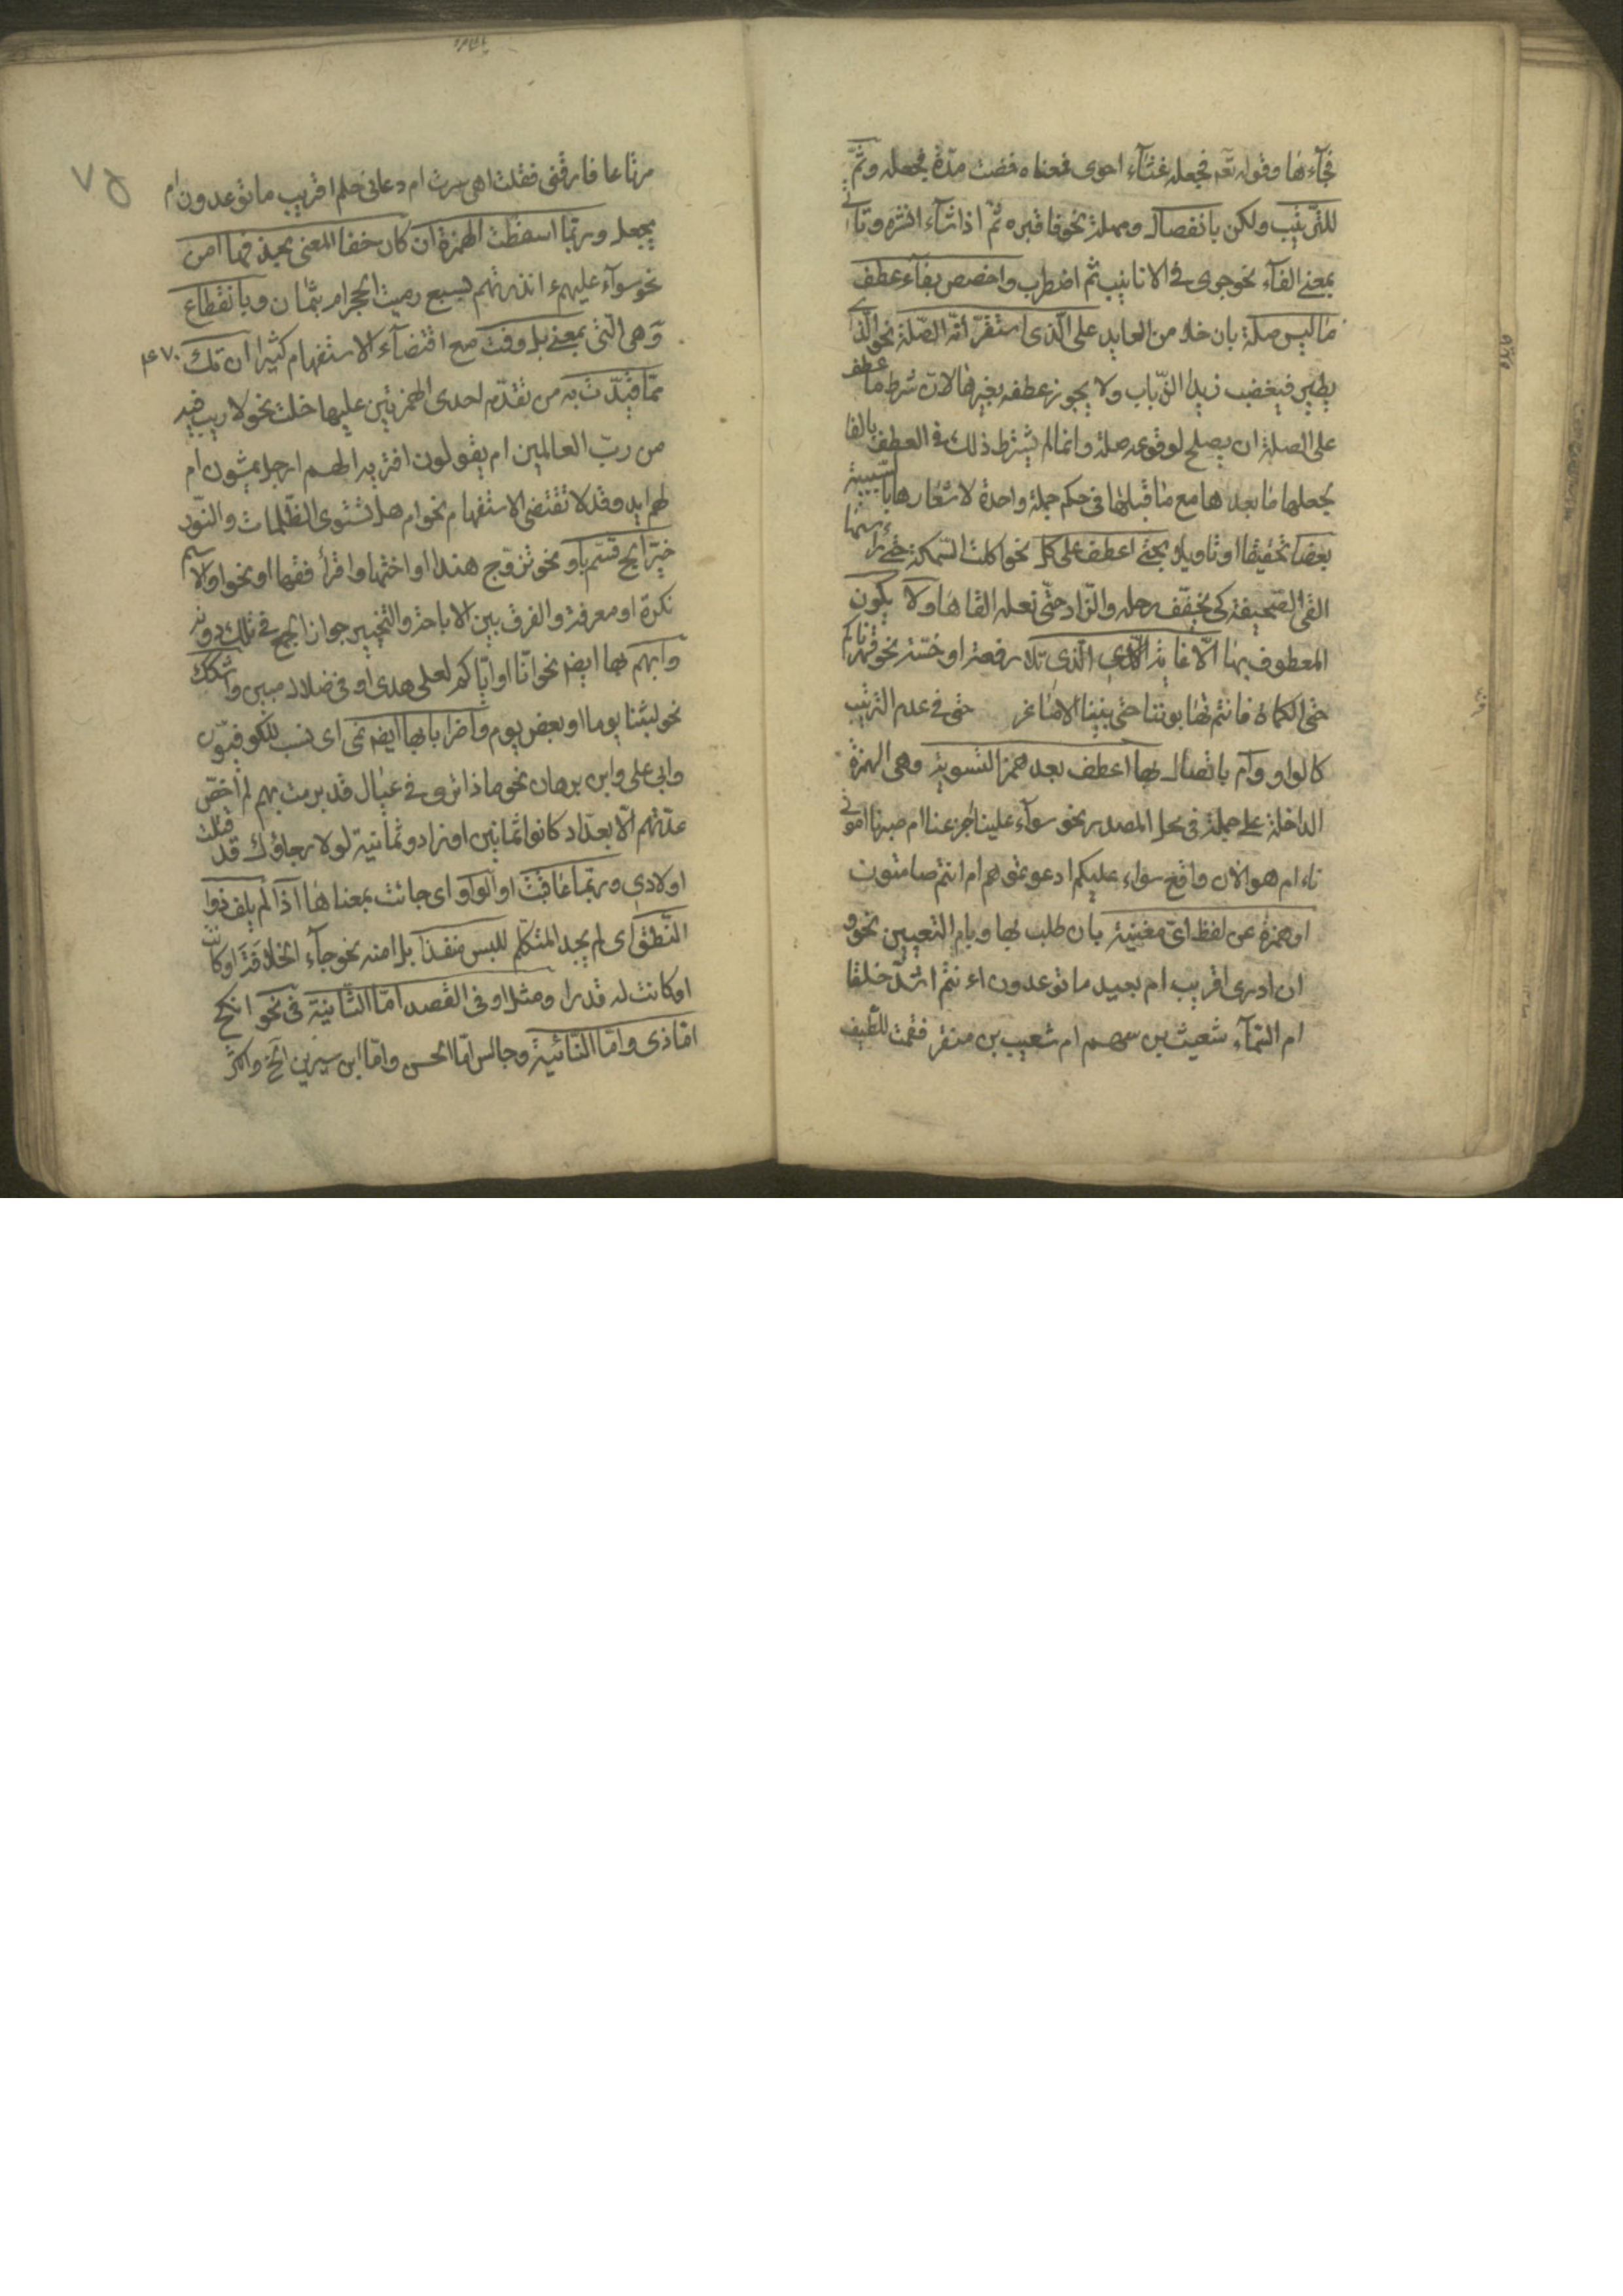 فجآءها وقوله تعم فجعله غثآء احوى فمعناه فمضت مدّة فجعله وثمّ
للترتيب ولكن بانفصال ومهلة نحو فاقبره ثمّ اذا شآء انشره وتاتى
بمعنى الفآء نحو جرى فى الانابيب ثم اضطرب واخصص بفآء عطف
ما ليس صلة بان خلا من العايد على الّذى استقرّ انّه الصّلة نحو الّذى
يطير فيغضب زيد الذّباب ولا يجوز عطفه بغيرها لانّ شرط ما عطف
على الصلة ان يصلح لوقوعه صلة وانما لم يشترط ذلك فى العطف بالفا
لجعلها ما بعدها مع ما قبلها فى حكم جملة واحدة لاشعارها بالسّببيّة
بعضا تحقيقا او تاويلا بحتى اعطف على كلّ نحو اكلت السّمكة حتى راسها
القى الصّحيفة كى يخفّف رحله والزّاد حتّى نعله القاها ولا يكون
المعطوف بها الّا غاية الّذى تلا رفعة او خسّة نحو قهرناكم
حتى الكماة فانتم تهابوننا حتى بنينا الاصاغر حتى فى عدم الترتيب
كالواو وأم باتصال بها اعطف بعد همز التّسوية وهى الهمزة
الداخلة على جملة فى محل المصدر نحو سوآء علينا أجزعنا ام صبرنا اموتى
ناء ام هو الآن واقع سواء عليكم ادعوتموهم ام انتم صامتون
او همزة عن لفظ اىّ مغنية بان طلب بها وبام التّعيين نحو و
ان ادرى اقريب ام بعيد ما توعدون ءانتم اشدّ خلقا
ام السّمآء شعيث بن سهم ام شعيب بن منقر فقمت للطّيف
٧٥
مرتاعا فارقنى فقلت اهى سرت ام عادنى حلم اقريب ما توعدون ام
يجعل وربّما اسقطت الهمزة ان كان خفا المعنى بحذفها امن
نحو سوآء عليهم ءانذرتهم بسبع رميت الجمر ام بثمان وبانقطاع
وهى الّتى بمعنى بل وفت مع اقتضآء الاستفهام كثيرا ان تك
ممّا قيّدت به من تقدّم احدى الهمزتين عليها خلت نحو لا ريب فيه
من ربّ العالمين ام يقولون افتريه الهم ارجل يمشون ام
لهم ايد وقد لا تقتضى الاستفهام نحو ام هل تستوى الظّلمات والنّور
خيّر ابح قسّم باو نحو تزوّج هندا او اختها واقرأ فقها او نحوا والاسم
نكرة او معرفة والفرق بين الاباحة والتّخيير جواز الجمع فى تلك دونه
وابهم بها ايضا نحو انّا او ايّاكم لعلى هدى او فى ضلال مبين واشكك
نحو لبثنا يوما او بعض يوم واضراب بها ايضا نمى اى نسب للكوفيّين
وابى على وابن برهان نحو ماذا ترى فى عيال قد برمت بهم لم احص
عدّتهم الّا بعدّاد كانوا ثمانين او زادو ثمانية لولا رجاؤك قد قتلت
اولادى وربّما عاقبت او الواو اى جائت بمعناها اذا لم يلف ذوا
النّطق اى لم يجد المتكلّم للبس منفذا بل امنه نحو جآء الخلافة او كانت
او كانت له قدرا ومثل او فى القصد امّا الثّانية فى نحو انكح
امّا ذى وامّا النّائية وجالس امّا الحسن وامّا ابن سيرين الخ واكثر